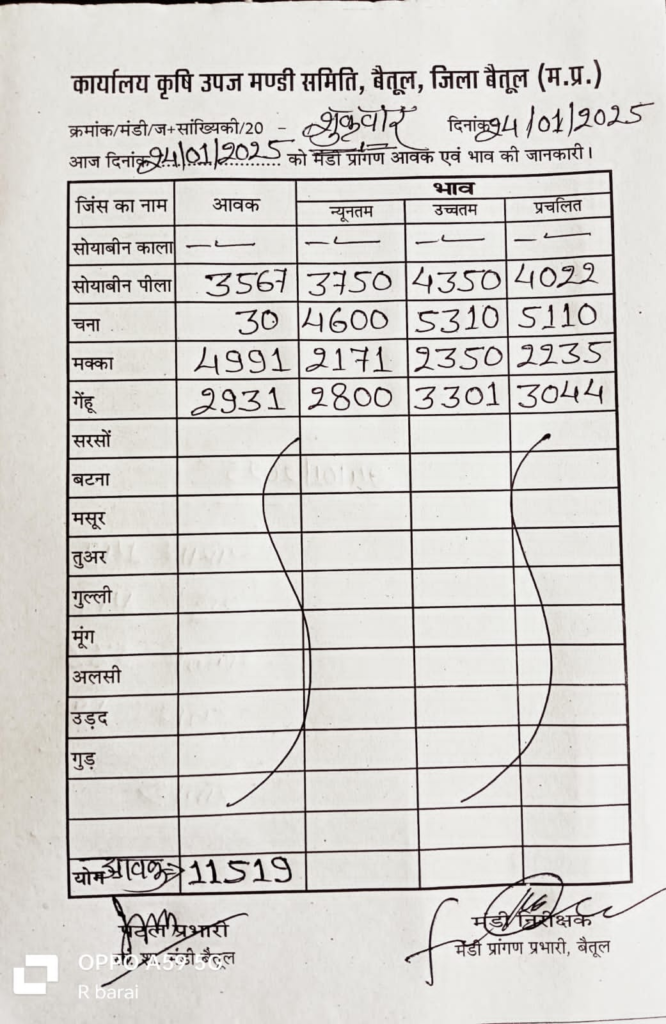 कार्यालय कृषि उपज मण्डी समिति, बैतूल, जिला बैतूल (म.प्र.)
क्रमांक/मंडी/ज+सांख्यिकी/20 - शुक्रवार दिनांक 24/01/2025
आज दिनांक 24/01/2025 को मंडी प्रांगण आवक एवं भाव की जानकारी।
जिंस का नाम आवक भाव
न्यूनतम उच्चतम प्रचलित
सोयाबीन काला — — — —
सोयाबीन पीला 3567 3750 4350 4022
चना 30 4600 5310 5110
मक्का 4991 2171 2350 2235
गेंहू 2931 2800 3301 3044
सरसों
बटना
मसूर
तुअर
गुल्ली
मूंग
अलसी
उड़द
गुड़
योग आवक 11519
प्रभारी मंडी निरीक्षक
मंडी बैतूल मंडी प्रांगण प्रभारी, बैतूल
OPPO A59 5G
R barai